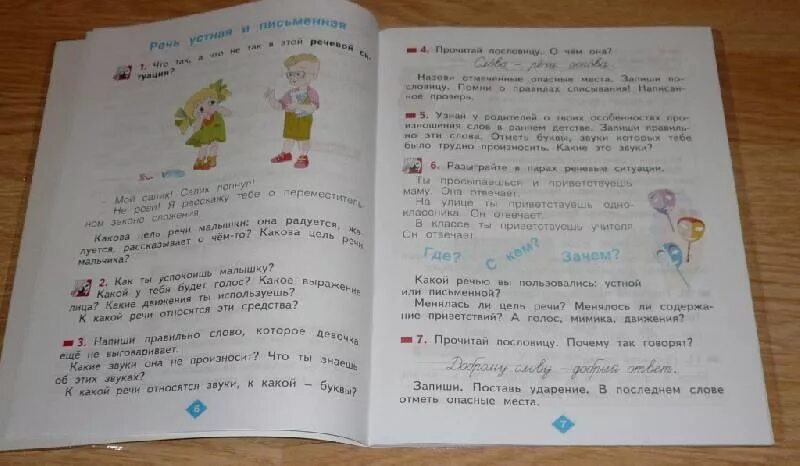 Речь устная и письменная
1. Что так, а что не так в этой речевой си-
туации?
Мой салик! Салик лопнул!
Не реви! Я расскажу тебе о переместитель-
ном законе сложения.
Какова цель речи малышки: она радуется, жа-
луется, рассказывает о чём-то? Какова цель речи
мальчика?
2. Как ты успокоишь малышку?
Какой у тебя будет голос? Какое выражение
лица? Какие движения ты используешь?
К какой речи относятся эти средства?
3. Напиши правильно слово, которое девочка
ещё не выговаривает.
Какие звуки она не произносит? Что ты знаешь
об этих звуках?
К какой речи относятся звуки, к какой – буквы?
6
4. Прочитай пословицу. О чём она?
Слова – речи основа.
Назови отмеченные опасные места. Запиши по-
словицу. Помни о правилах списывания! Написан-
ное проверь.
5. Узнай у родителей о твоих особенностях про-
изношения слов в раннем детстве. Запиши правиль-
но эти слова. Отметь буквы, звуки которых тебе
было трудно произносить. Какие это звуки?
6. Разыграйте в парах речевые ситуации.
Ты просыпаешься и приветствуешь
маму. Она отвечает.
На улице ты приветствуешь одно-
классника. Он отвечает.
В классе ты приветствуешь учителя.
Он отвечает.
Где? С кем? Зачем?
Какой речью вы пользовались: устной
или письменной?
Менялась ли цель речи? Менялось ли содержа-
ние приветствий? А голос, мимика, движения?
7. Прочитай пословицу. Почему так говорят?
Доброму слову – добрый ответ.
Запиши. Поставь ударение. В последнем слове
отметь опасные места.
7